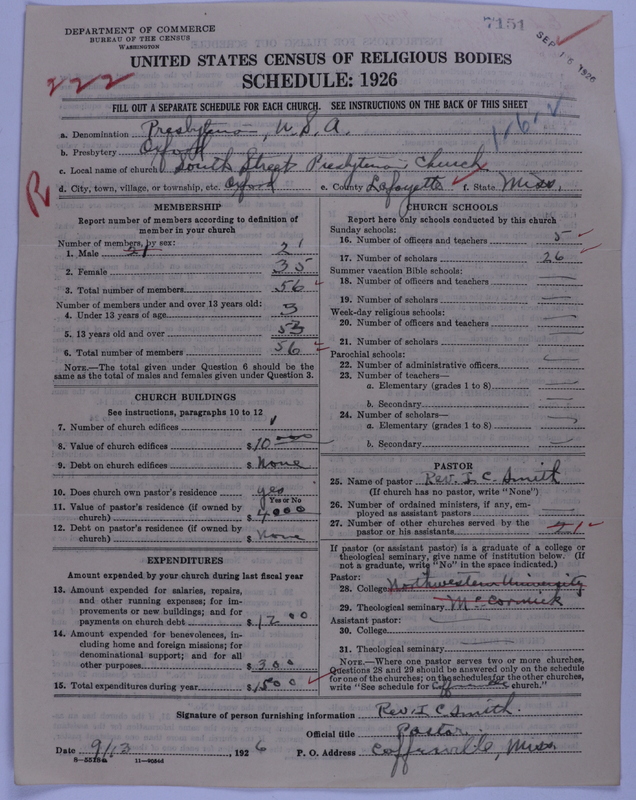 7151
SEP 16 1926
DEPARTMENT OF COMMERCE
BUREAU OF THE CENSUS
WASHINGTON
UNITED STATES CENSUS OF RELIGIOUS BODIES
SCHEDULE: 1926
222
FILL OUT A SEPARATE SCHEDULE FOR EACH CHURCH. SEE INSTRUCTIONS ON THE BACK OF THIS SHEET
a. Denomination Presbyterian, U.S.A.
b. Presbytery Oxford
c. Local name of church South Street Presbyterian Church
d. City, town, village, or township, etc. Oxford e. County Lafayette f. State Miss.
R
MEMBERSHIP
Report number of members according to definition of
member in your church
Number of members, by sex:
1. Male 21 21
2. Female 35
3. Total number of members 56
Number of members under and over 13 years old:
4. Under 13 years of age 3
5. 13 years old and over 53
6. Total number of members 56
NOTE.—The total given under Question 6 should be
same as the total of males and females given under Question 3.
CHURCH BUILDINGS
See instructions, paragraphs 10 to 12
7. Number of church edifices 1
8. Value of church edifices $10000
9. Debt on church edifices $None
10. Does church own pastor's residence yes
Yes or No
11. Value of pastor's residence (if owned by
church) $4000
12. Debt on pastor's residence (if owned by
church) $None
EXPENDITURES
Amount expended by your church during last fiscal year
13. Amount expended for salaries, repairs,
and other running expenses; for im-
provements or new buildings; and for
payments on church debt $1200
14. Amount expended for benevolences, in-
cluding home and foreign missions; for
denominational support; and for all
other purposes $300
15. Total expenditures during year $1500
CHURCH SCHOOLS
Report here only schools conducted by this church
Sunday schools:
16. Number of officers and teachers 5
17. Number of scholars 26
Summer vacation Bible schools:
18. Number of officers and teachers
19. Number of scholars
Week-day religious schools:
20. Number of officers and teachers
21. Number of scholars
Parochial schools:
22. Number of administrative officers
23. Number of teachers—
a. Elementary (grades 1 to 8)
b. Secondary
24. Number of scholars—
a. Elementary (grades 1 to 8)
b. Secondary
PASTOR
25. Name of pastor Rev. I. C. Smith
(If church has no pastor, write "None")
26. Number of ordained ministers, if any, em-
ployed as assistant pastors
27. Number of other churches served by the
pastor or his assistants 1
If pastor (or assistant pastor) is a graduate of a college or
theological seminary, give name of institution below. (If
not a graduate, write "No" in the space indicated.)
Pastor:
28. College Northwestern University
29. Theological seminary McCormick
Assistant pastor:
30. College
31. Theological seminary
NOTE.—Where one pastor serves two or more churches,
Questions 28 and 29 should be answered only on the schedule
for one of the churches; on the schedules for the other churches,
write "See schedule for Coffeeville church."
Signature of person furnishing information Rev. I C Smith.
Official title Pastor
Date 9/13, 1926 P. O. Address Coffeeville, Miss.